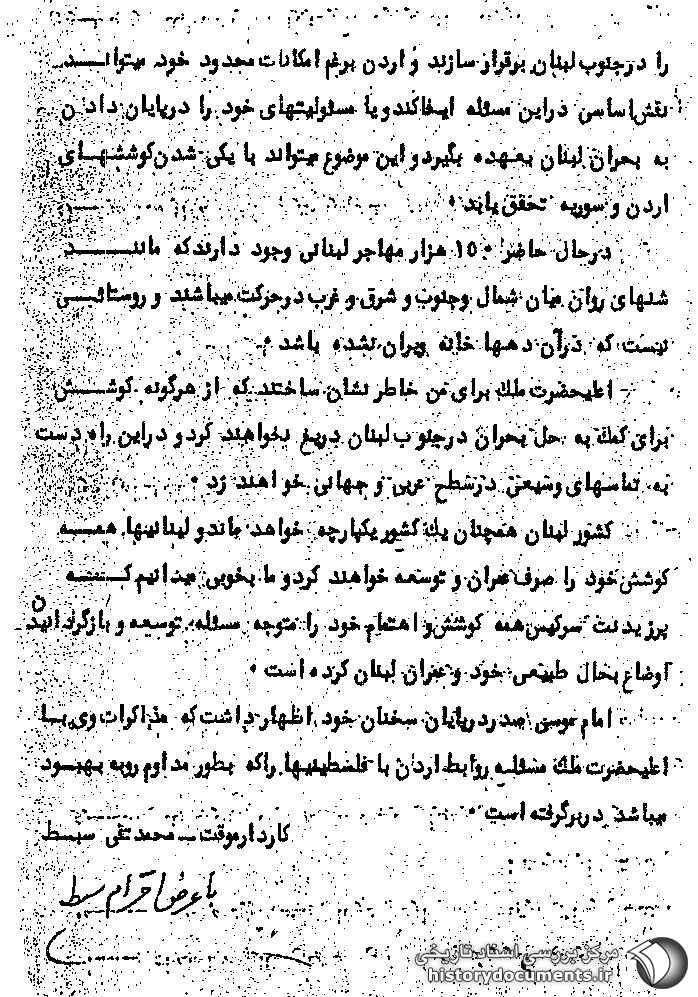 را در جنوب لبنان برقرار سازند و اردن برغم امکانات محدود خود میتوانـــد
نقش اساسی در این مسئله ایفا کند و یا مسئولیتهای خود را در پایان دادن
به بحران لبنان بعهده بگیرد و این موضوع میتواند با یکی شدن کوششهـای
اردن و سوریه تحقق یابد ۰
در حال حاضر ۱۵۰ هزار مهاجر لبنانی وجود دارند که ماننــــد
شنهای روان میان شمال و جنوب و شرق و غرب در حرکت میباشند و روستائـی
نیست که در آن دهها خانه ویران نشده باشد ۰
اعلیحضرت ملک برای من خاطر نشان ساختند که از هرگونه کوشـــش
برای کمک به حل بحران در جنوب لبنان دریغ نخواهند کرد و در این راه دست
به تماسهای وسیعی در سطح عربی و جهانی خواهند زد ۰
کشور لبنان همچنان یک کشور یکپارچه خواهد ماند و لبنانیها همــه
کوشش خود را صرف عمران و توسعه خواهند کرد و ما بخوبی میدانیم کـــه
پرزیدنت سرکیس همه کوشش و اهتمام خود را متوجه مسئله توسعه و بازگردانیدن
اوضاع بحال طبیعی خود و عمران لبنان کرده است ۰
امام موسی صدر در پایان سخنان خود اظهار داشت که مذاکرات وی بـا
اعلیحضرت ملک مسئله روابط اردن با فلسطینیها را که بطور مداوم رو به بهبـود
میباشد در برگرفته است ۰
کاردار موقت ـ محمد تقی سبـط
با عرض احترام سبط
مرکز بررسی اسناد تاریخی
historydocuments.ir